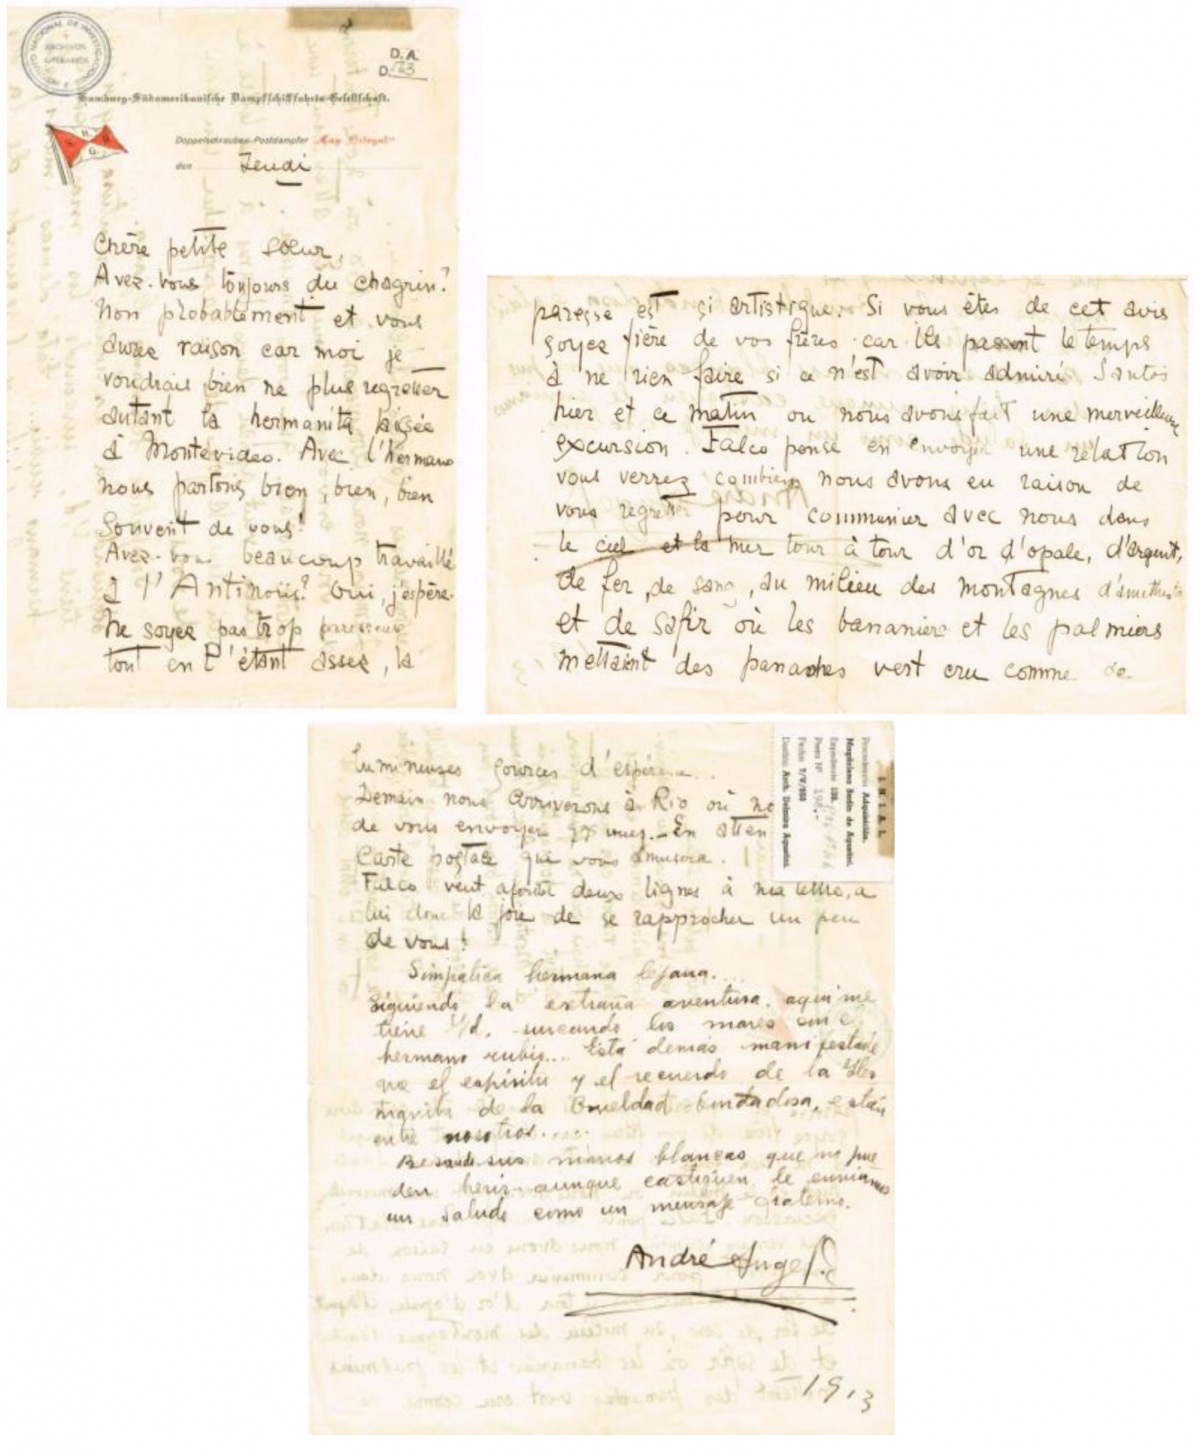 INSTITUTO NACIONAL DE INVESTIGACIONES Y ARCHIVOS LITERARIOS
D.A.
D. 533
Hamburg-Südamerikanische Dampfschifffahrts-Gesellschaft.
H.
S. D.
G.
Doppelschrauben-Postdampfer "Cap Ortegal"
den Jeudi
Chère petite soeur,
Avez-vous toujours du chagrin?
Non probablement et vous
avez raison car moi je
voudrais bien ne plus regretter
autant la hermanita laissée
à Montevideo. Avec l'hermano
nous parlons bien, bien, bien
souvent de vous!
Avez-vous beaucoup travaillé
à l'Antinoüs? Oui, j'espère.
Ne soyez pas trop paresseuse
tout en l'étant assez, la
paresse est si artistique. Si vous êtes de cet avis
soyez fière de vos frères car ils passent le temps
à ne rien faire si ce n'est avoir admiré Santos
hier et ce matin ou nous avons fait une merveilleuse
excursion. Falco pense en envoyer une relation
vous verrez combien nous avons eu raison de
vous regretter pour communier avec nous dans
le ciel et la mer tour à tour d'or d'opale, d'argent,
de fer, de sang, au milieu des montagnes d'améthyste
et de safir où les bananiers et les palmiers
mettaient des panaches vert cru comme de
lumineuses sources d'espérance...
Demain nous arriverons à Rio où
de vous envoyer vues. En atten
Carte postale que vous amusera.
Falco veut ajouter deux lignes à ma lettre, a
lui donc la joie de se rapprocher un peu
de vous!
Simpática hermana lejana...
Siguiendo la extraña aventura, aqui me
tiene Vd. surcando los mares con el
hermano rubio... Está demás manifestade
que el espíritu y el recuerdo de la Her
manita de la Crueldad bondadosa, están
entre nosotros...
Besando sus manos blancas que no pue
den herir aunque castiguen le enviamos
un saludo como un mensaje fraterno.
André Angel F.
1913
I.N.I.A.L.
Procedencia: Adquisición.
Expediente 136
Pieza Nº
Fecha 7/V/953
Destino: Arch. Delmira Agustini.